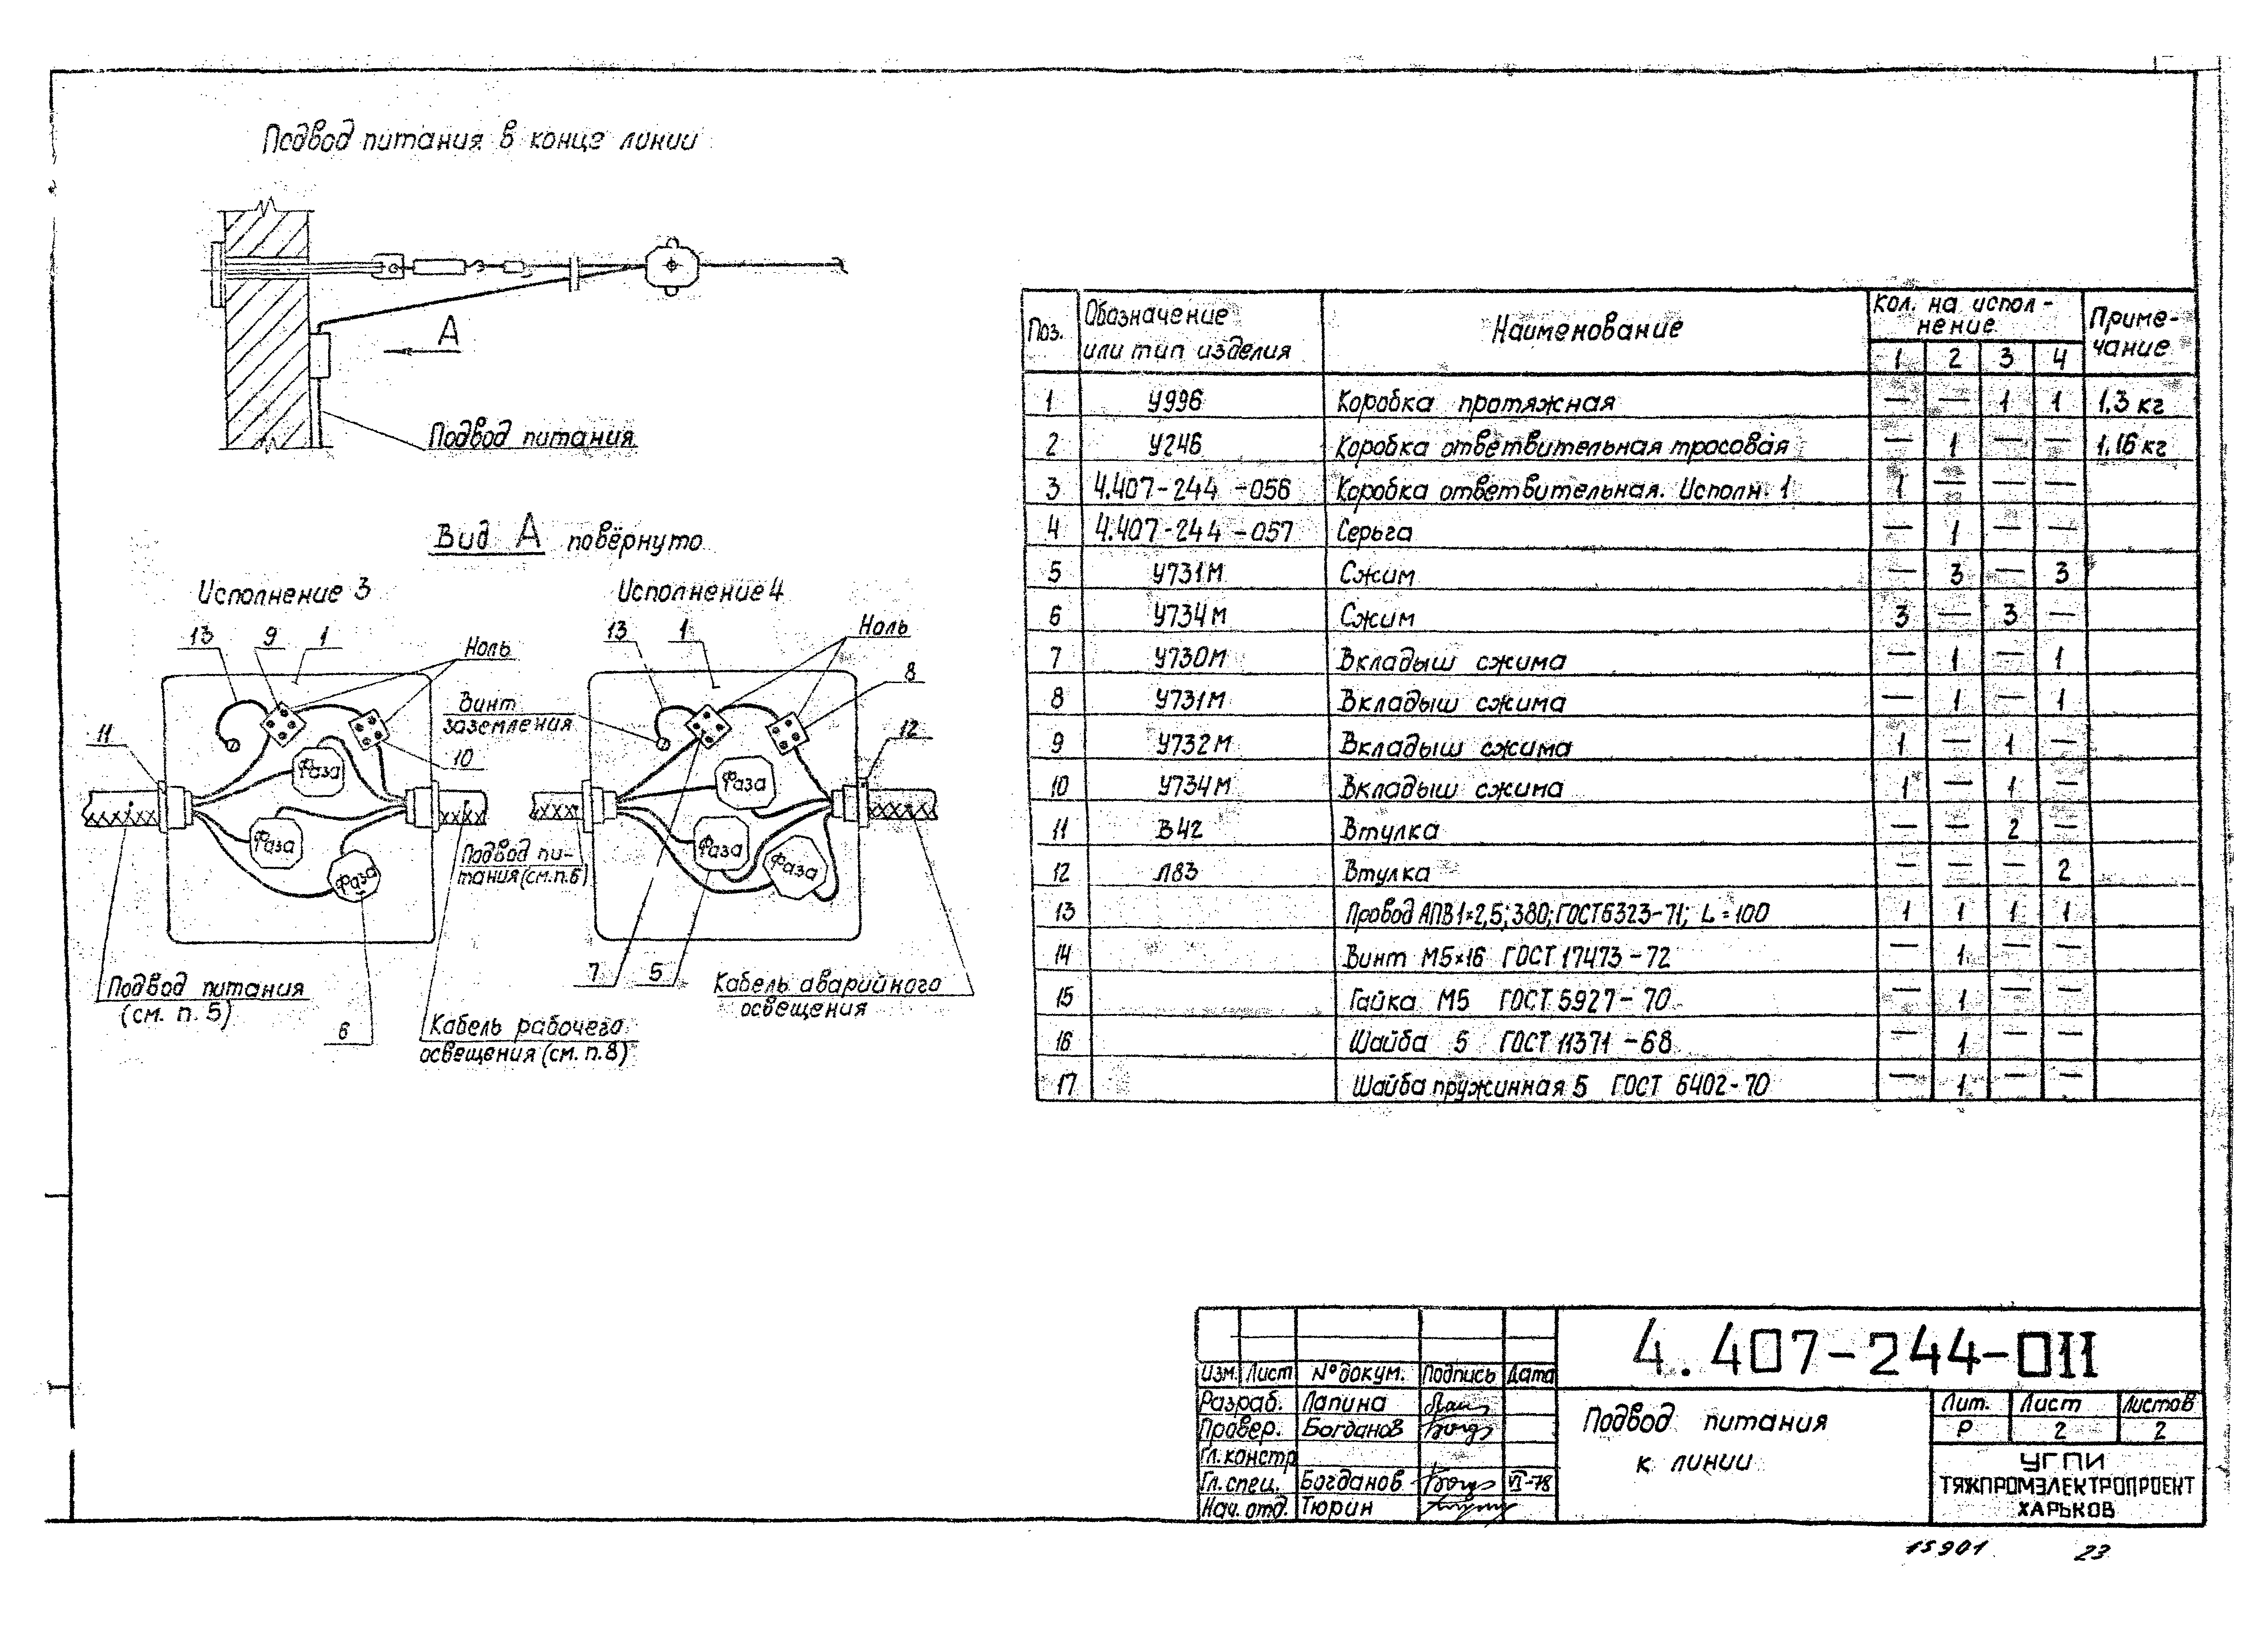 Подвод питания в конце линии
А
Подвод питания
Вид А повёрнуто
Исполнение 3
13 9 1 Ноль
11
10
Подвод питания
(см. п. 5)
6
Кабель рабочего
освещения (см. п. 8)
Исполнение 4
13 1 Ноль
8
Винт
заземления
12
Подвод пи-
тания (см. п. 6)
7 5
Кабель аварийного
освещения
Фаза
Фаза
Фаза
Фаза
Фаза
Фаза
Поз. Обозначение или тип изделия Наименование Кол. на испол-нение Приме-чание
1 2 3 4
1 У996 Коробка протяжная — — 1 1 1,3 кг
2 У246 Коробка ответвительная тросовая — 1 — — 1,16 кг
3 4.407-244-056 Коробка ответвительная. Исполн. 1 1 — — —
4 4.407-244-057 Серьга — 1 — —
5 У731М Сжим — 3 — 3
6 У734М Сжим 3 — 3 —
7 У730М Вкладыш сжима — 1 — 1
8 У731М Вкладыш сжима — 1 — 1
9 У732М Вкладыш сжима 1 — 1 —
10 У734М Вкладыш сжима 1 — 1 —
11 В42 Втулка — — 2 —
12 Л83 Втулка — — — 2
13 Провод АПВ1×2,5; 380; ГОСТ 6323-71; L=100 1 1 1 1
14 Винт М5×16 ГОСТ 17473-72 — 1 — —
15 Гайка М5 ГОСТ 5927-70 — 1 — —
16 Шайба 5 ГОСТ 11371-68 — 1 — —
17 Шайба пружинная 5 ГОСТ 6402-70 — 1 — —
4.407-244-011
Изм. Лист № докум. Подпись Дата
Разраб. Лапина
Провер. Богданов
Гл. констр
Гл. спец. Богданов VI-78
Нач. отд. Тюрин
Подвод питания
к линии
Лит. Лист Листов
Р 2 2
УГПИ
ТЯЖПРОМЭЛЕКТРОПРОЕКТ
ХАРЬКОВ
15901 23